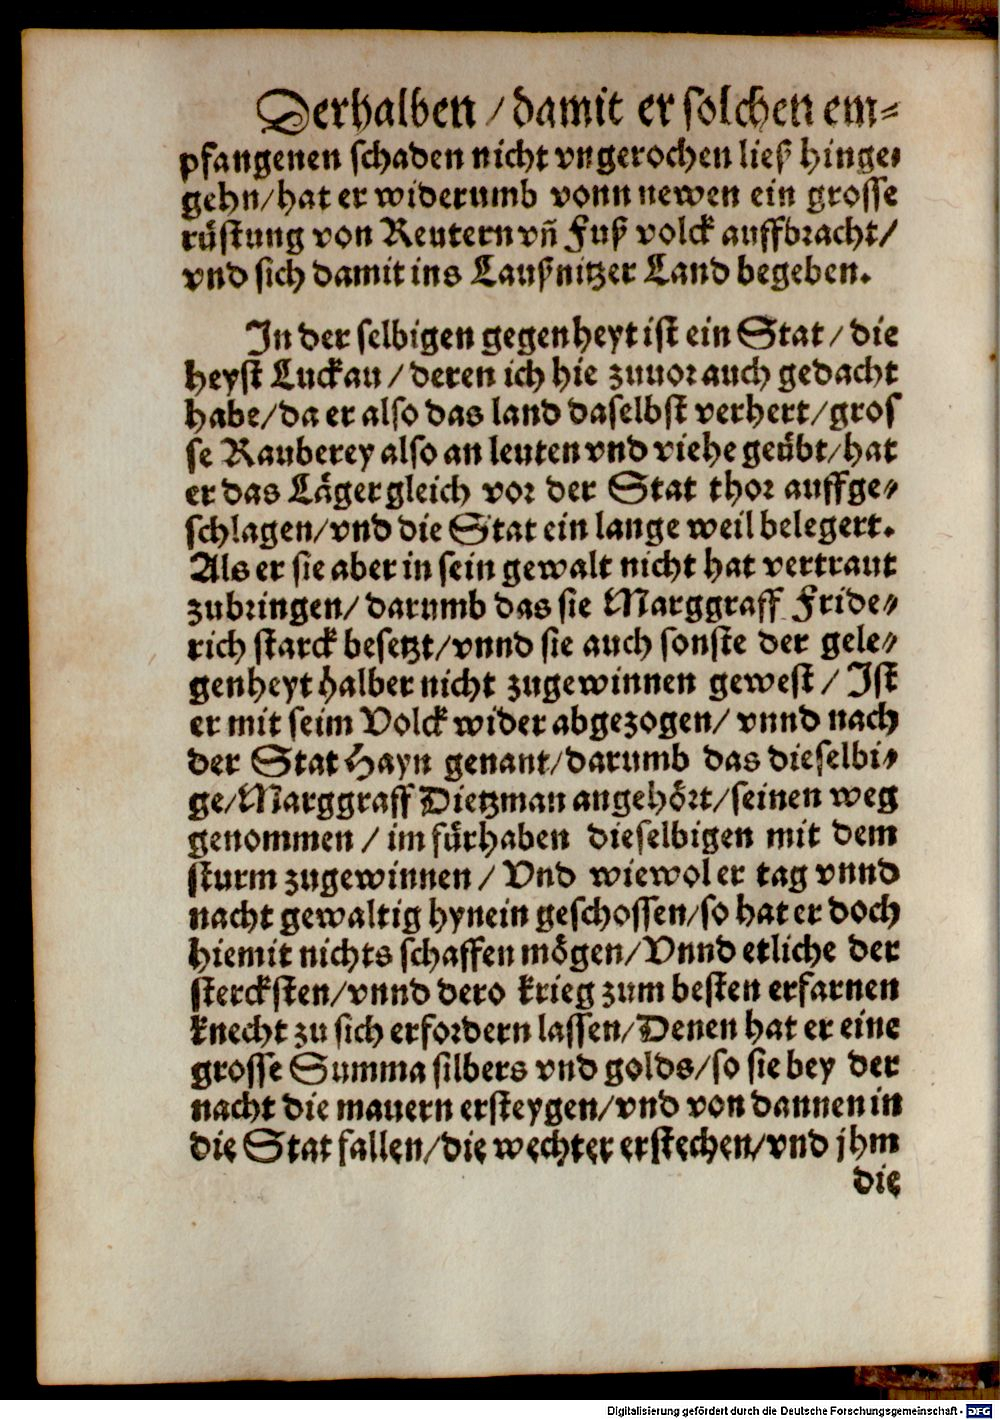 Derhalben / damit er solchen em⸗
pfangenen schaden nicht vngerochen ließ hinge⸗
gehn/hat er widerumb vonn newen ein grosse
rüstung von Reutern vñ Fuß volck auffbracht/
vnd sich damit ins Laußnitzer Land begeben.
In der selbigen gegenheyt ist ein Stat / die
heyst Luckau / deren ich hie zuuor auch gedacht
habe/da er also das land daselbst verhert/gros
se Rauberey also an leuten vnd viehe geübt/hat
er das Läger gleich vor der Stat thor auffge⸗
schlagen/vnd die Stat ein lange weil belegert.
Als er sie aber in sein gewalt nicht hat vertraut
zubringen/ darumb das sie Marggraff Fride⸗
rich starck besetzt/vnnd sie auch sonste der gele⸗
genheyt halber nicht zugewinnen gewest / Ist
er mit seim Volck wider abgezogen/ vnnd nach
der Stat Hayn genant/darumb das dieselbi⸗
ge/Marggraff Dietzman angehört/seinen weg
genommen / im fürhaben dieselbigen mit dem
sturm zugewinnen / Vnd wiewol er tag vnnd
nacht gewaltig hynein geschossen/so hat er doch
hiemit nichts schaffen mögen/Vnnd etliche der
stercksten/vnnd dero krieg zum besten erfarnen
knecht zu sich erfordern lassen/Denen hat er eine
grosse Summa silbers vnd golds/so sie bey der
nacht die mauern ersteygen/vnd von dannen in
die Stat fallen/die wechter erstechen/vnd jhm
die
Digitalisierung gefördert durch die Deutsche Forschungsgemeinschaft - DFG